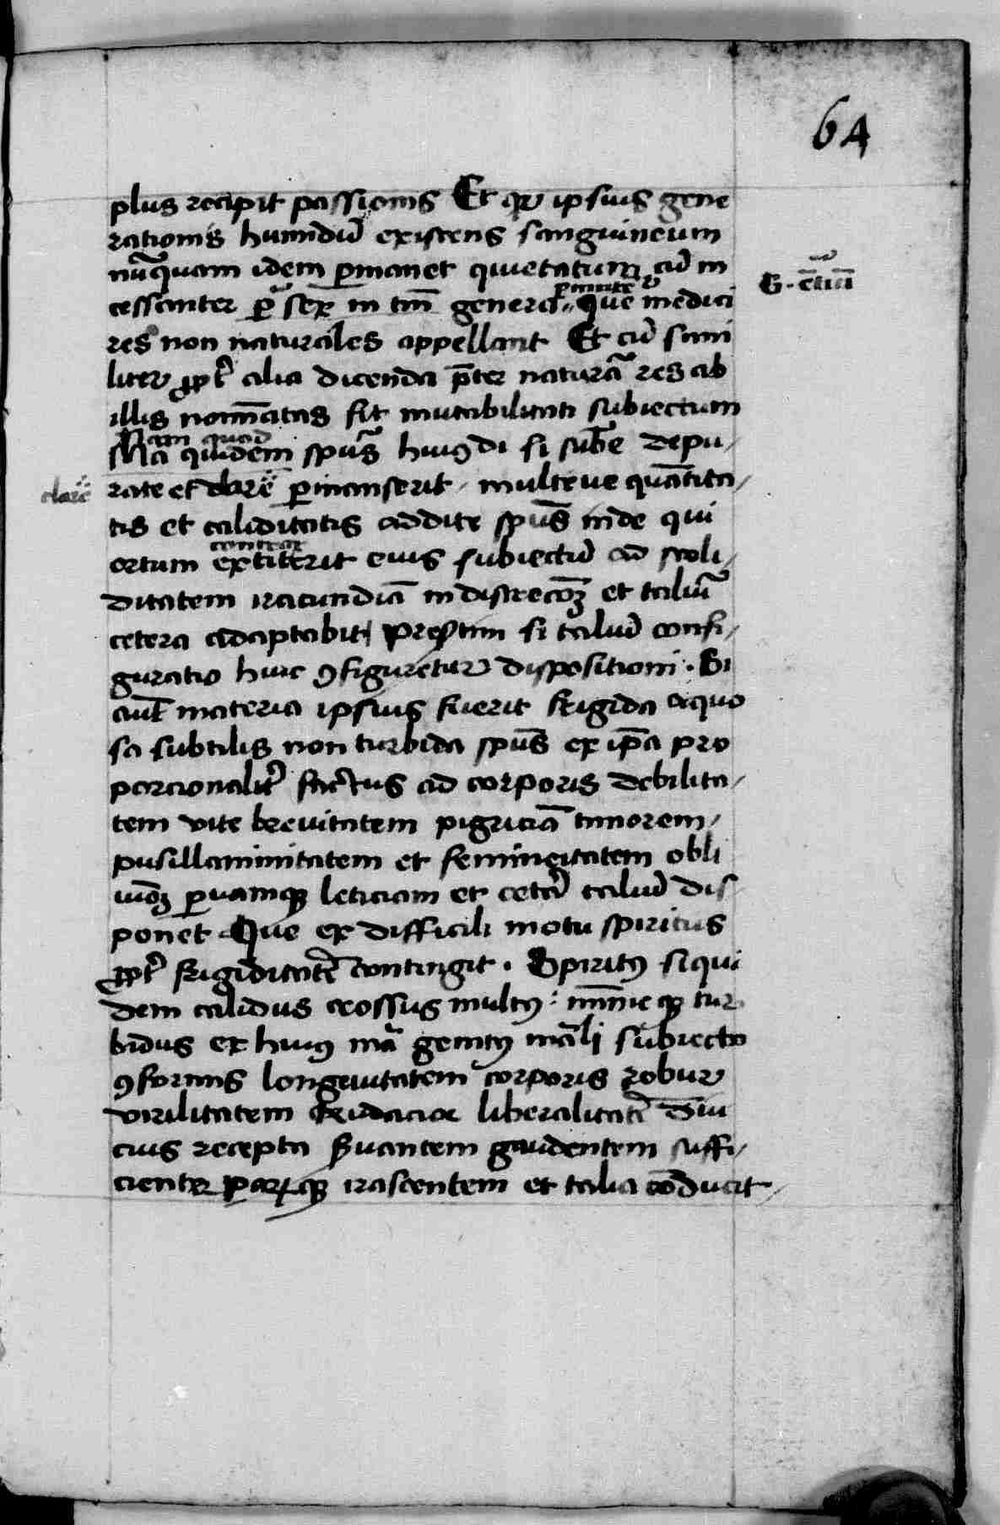 64
plus recipit passionis Et qr ipsius gene
rationis humidū existens sanguineum
nūquam idem ꝑmanet quietatum cū in
cessanter ꝑ sex in tm̄ genera Que medici
res non naturales appellant Et cū simi
liter ꝓpt̄ alia dicenda p̄ter naturā res ab
illis noīatas sit mutabilitati subiectum
Nā quidem spūs huiꝰdi si subt̄e depu/
rate et clare ꝑmanserit multeve quātita/
tis et caliditatis addite spūs inde qui
ortum extiterit eius subiectū ad stoli/
ditatem iracundiā indiscrecōꝫ et taliū
cetera adaptabit presertim si taliū confi/
guratio huic ꝯfiguretur dispositioni . Si
aut̄ materia ipsius fuerit frigida aquo
sa subtilis non turbida spūs ex ip̄a pro
porcionalit̄ factus ad corporis debilita/
tem vite brevitatem pigriciā timorem/
pusillanimitatem et femineitatem obli
uiōꝫ paruamqꝫ leticiam et cetera taliū dis
ponet Que ex difficili motu spiritus
ꝓpt̄ frigiditatē contingit . Spiritꝰ siqui
dem calidus crossus multꝰ nimieqꝫ tur
bidus ex huiꝰ mā genitꝰ māli subiecto
ꝯformis longevitatem corporis robur
virilitatem audacia liberalitatē diu
cius recepta servantem gaudentem suffi/
cienter parumqꝫ irascentem et talia cōducit
clare